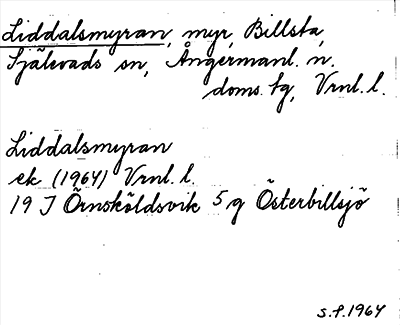 Liddalsmyran, myr, Billsta,
Själevads sn, Ångermanl. n.
doms. tg, Vrnl. l.
Liddalsmyran
ek (1964) Vrnl. l.
19 J Örnsköldsvik 5 g Österbillsjö
S.F. 1964